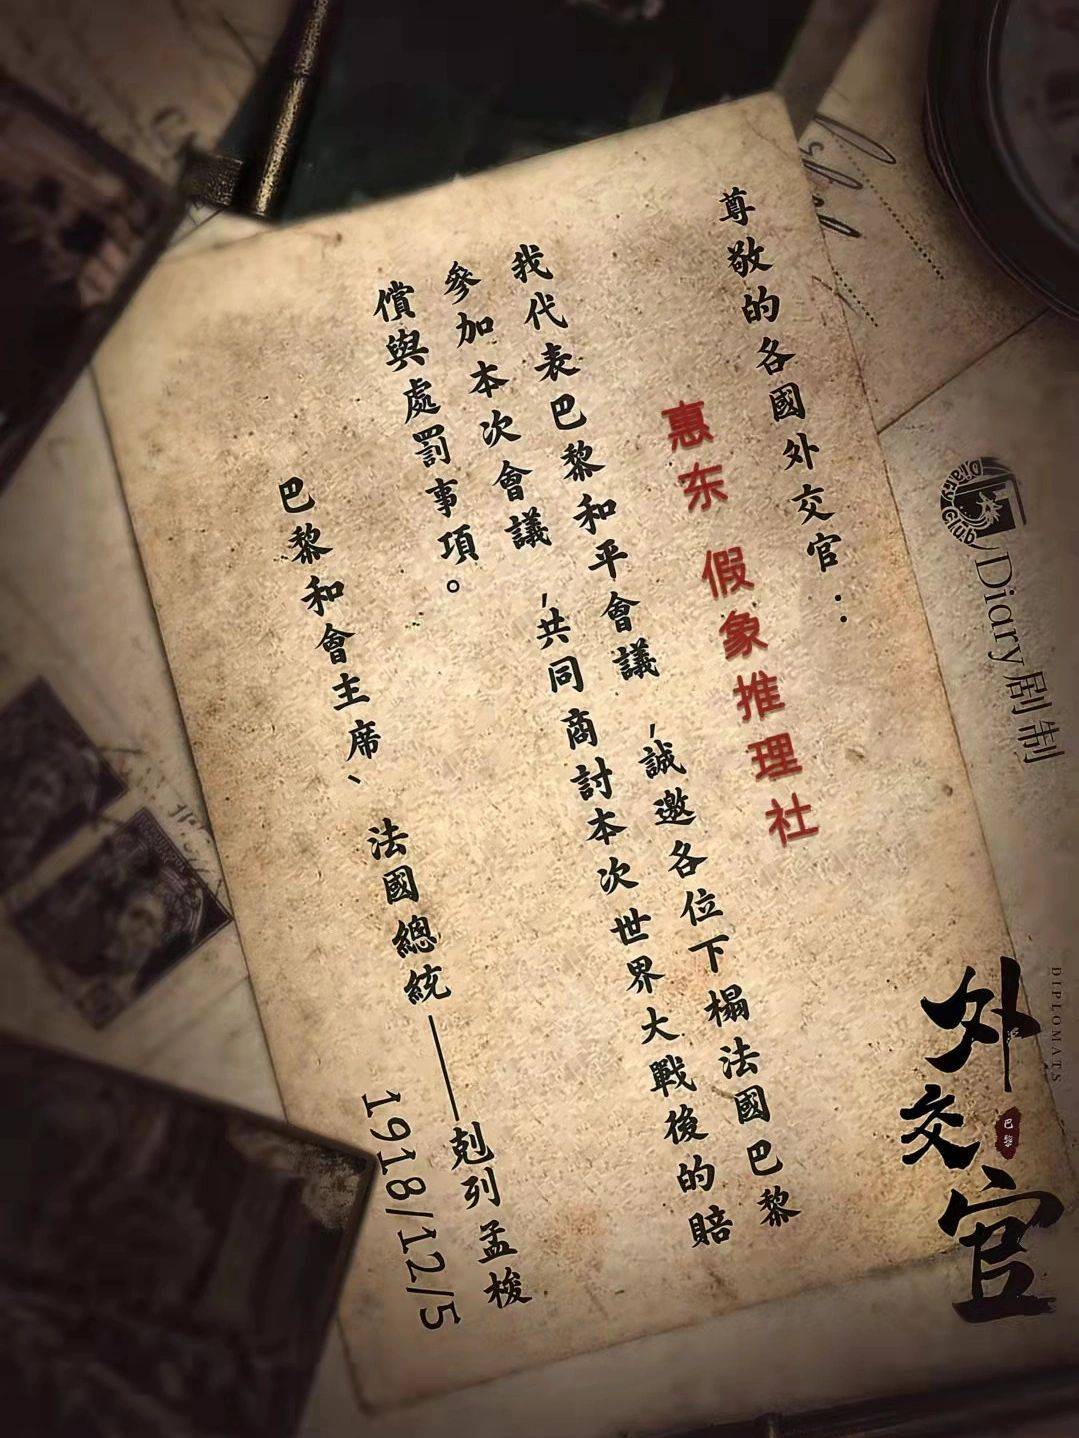 尊敬的各國外交官：
惠东 假象推理社
我代表巴黎和平會議，誠邀各位下榻法國巴黎
參加本次會議，共同商討本次世界大戰後的賠
償與處罰事項。
巴黎和會主席、法國總統——剋列孟梭
1918/12/5
Diary Club
Diary剧制
外交官
DIPLOMATS
巴黎